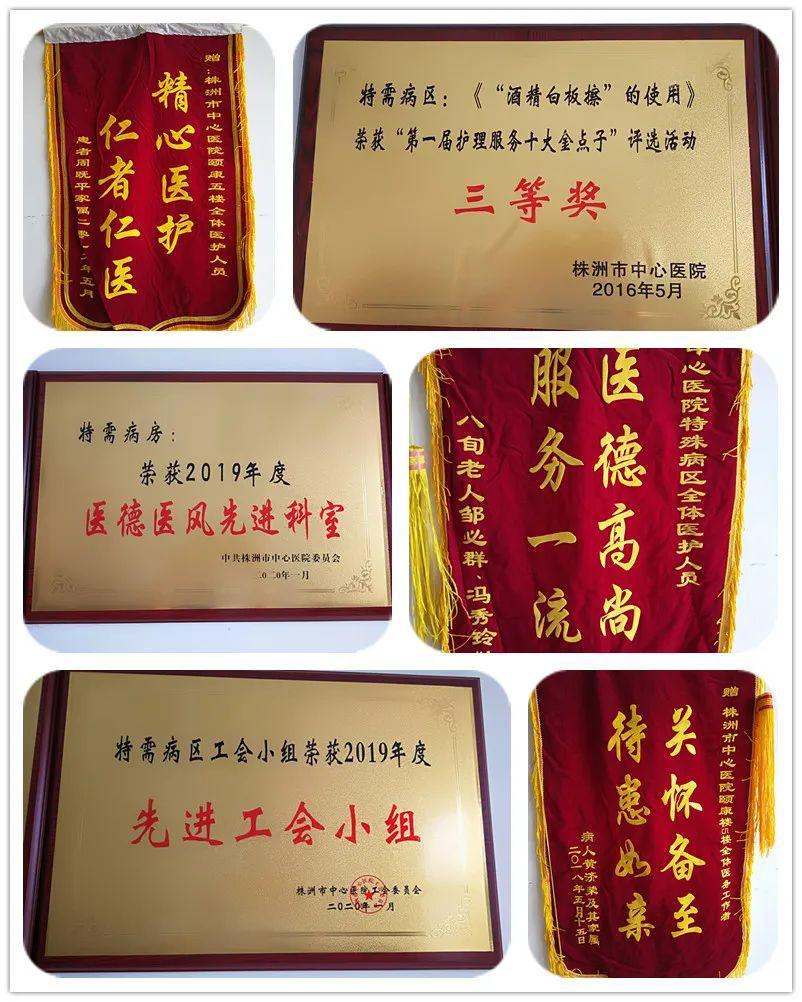 赠：株洲市中心医院颐康五楼全体医护人员
精心医护
仁者仁医
特需病区：《“酒精白板擦”的使用》
荣获“第一届护理服务十大金点子”评选活动
三等奖
株洲市中心医院
2016年5月
特需病房：
荣获2019年度
医德医风先进科室
中共株洲市中心医院委员会
二〇二〇年一月
心医院特殊病区全体医护人员
医德高尚
服务一流
八旬老人邹必群、冯秀铃
特需病区工会小组荣获2019年度
先进工会小组
株洲市中心医院工会委员会
二〇二〇年一月
赠 株洲市中心医院颐康楼5楼全体医务工作者
关怀备至
待患如亲
病人黄济荣及其家属
二〇一八年五月十五日